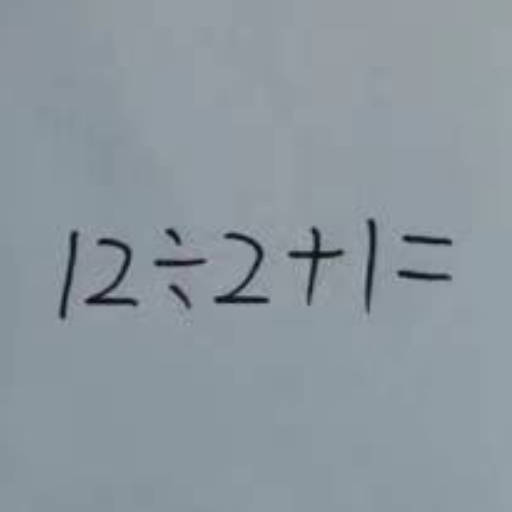 12÷2+1=